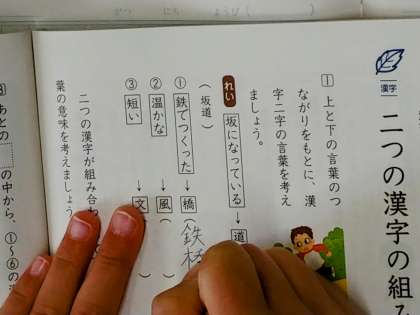 漢字
二つの漢字の組み
1 上と下の言葉のつ
ながりをもとに、漢
字二字の言葉を考え
ましょう。
れい 坂になっている → 道
（坂道）
① 鉄でつくった → 橋（鉄
② 温かな → 風（ ）
③ 短い → 文（ ）
二つの漢字が組み合わ
葉の意味を考えましょう
あとの の中から、①〜⑥の